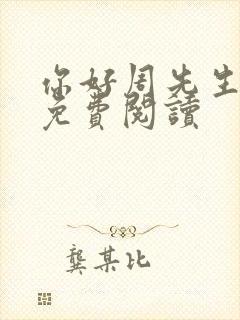 你好周先生
免費閱讀
龔某比